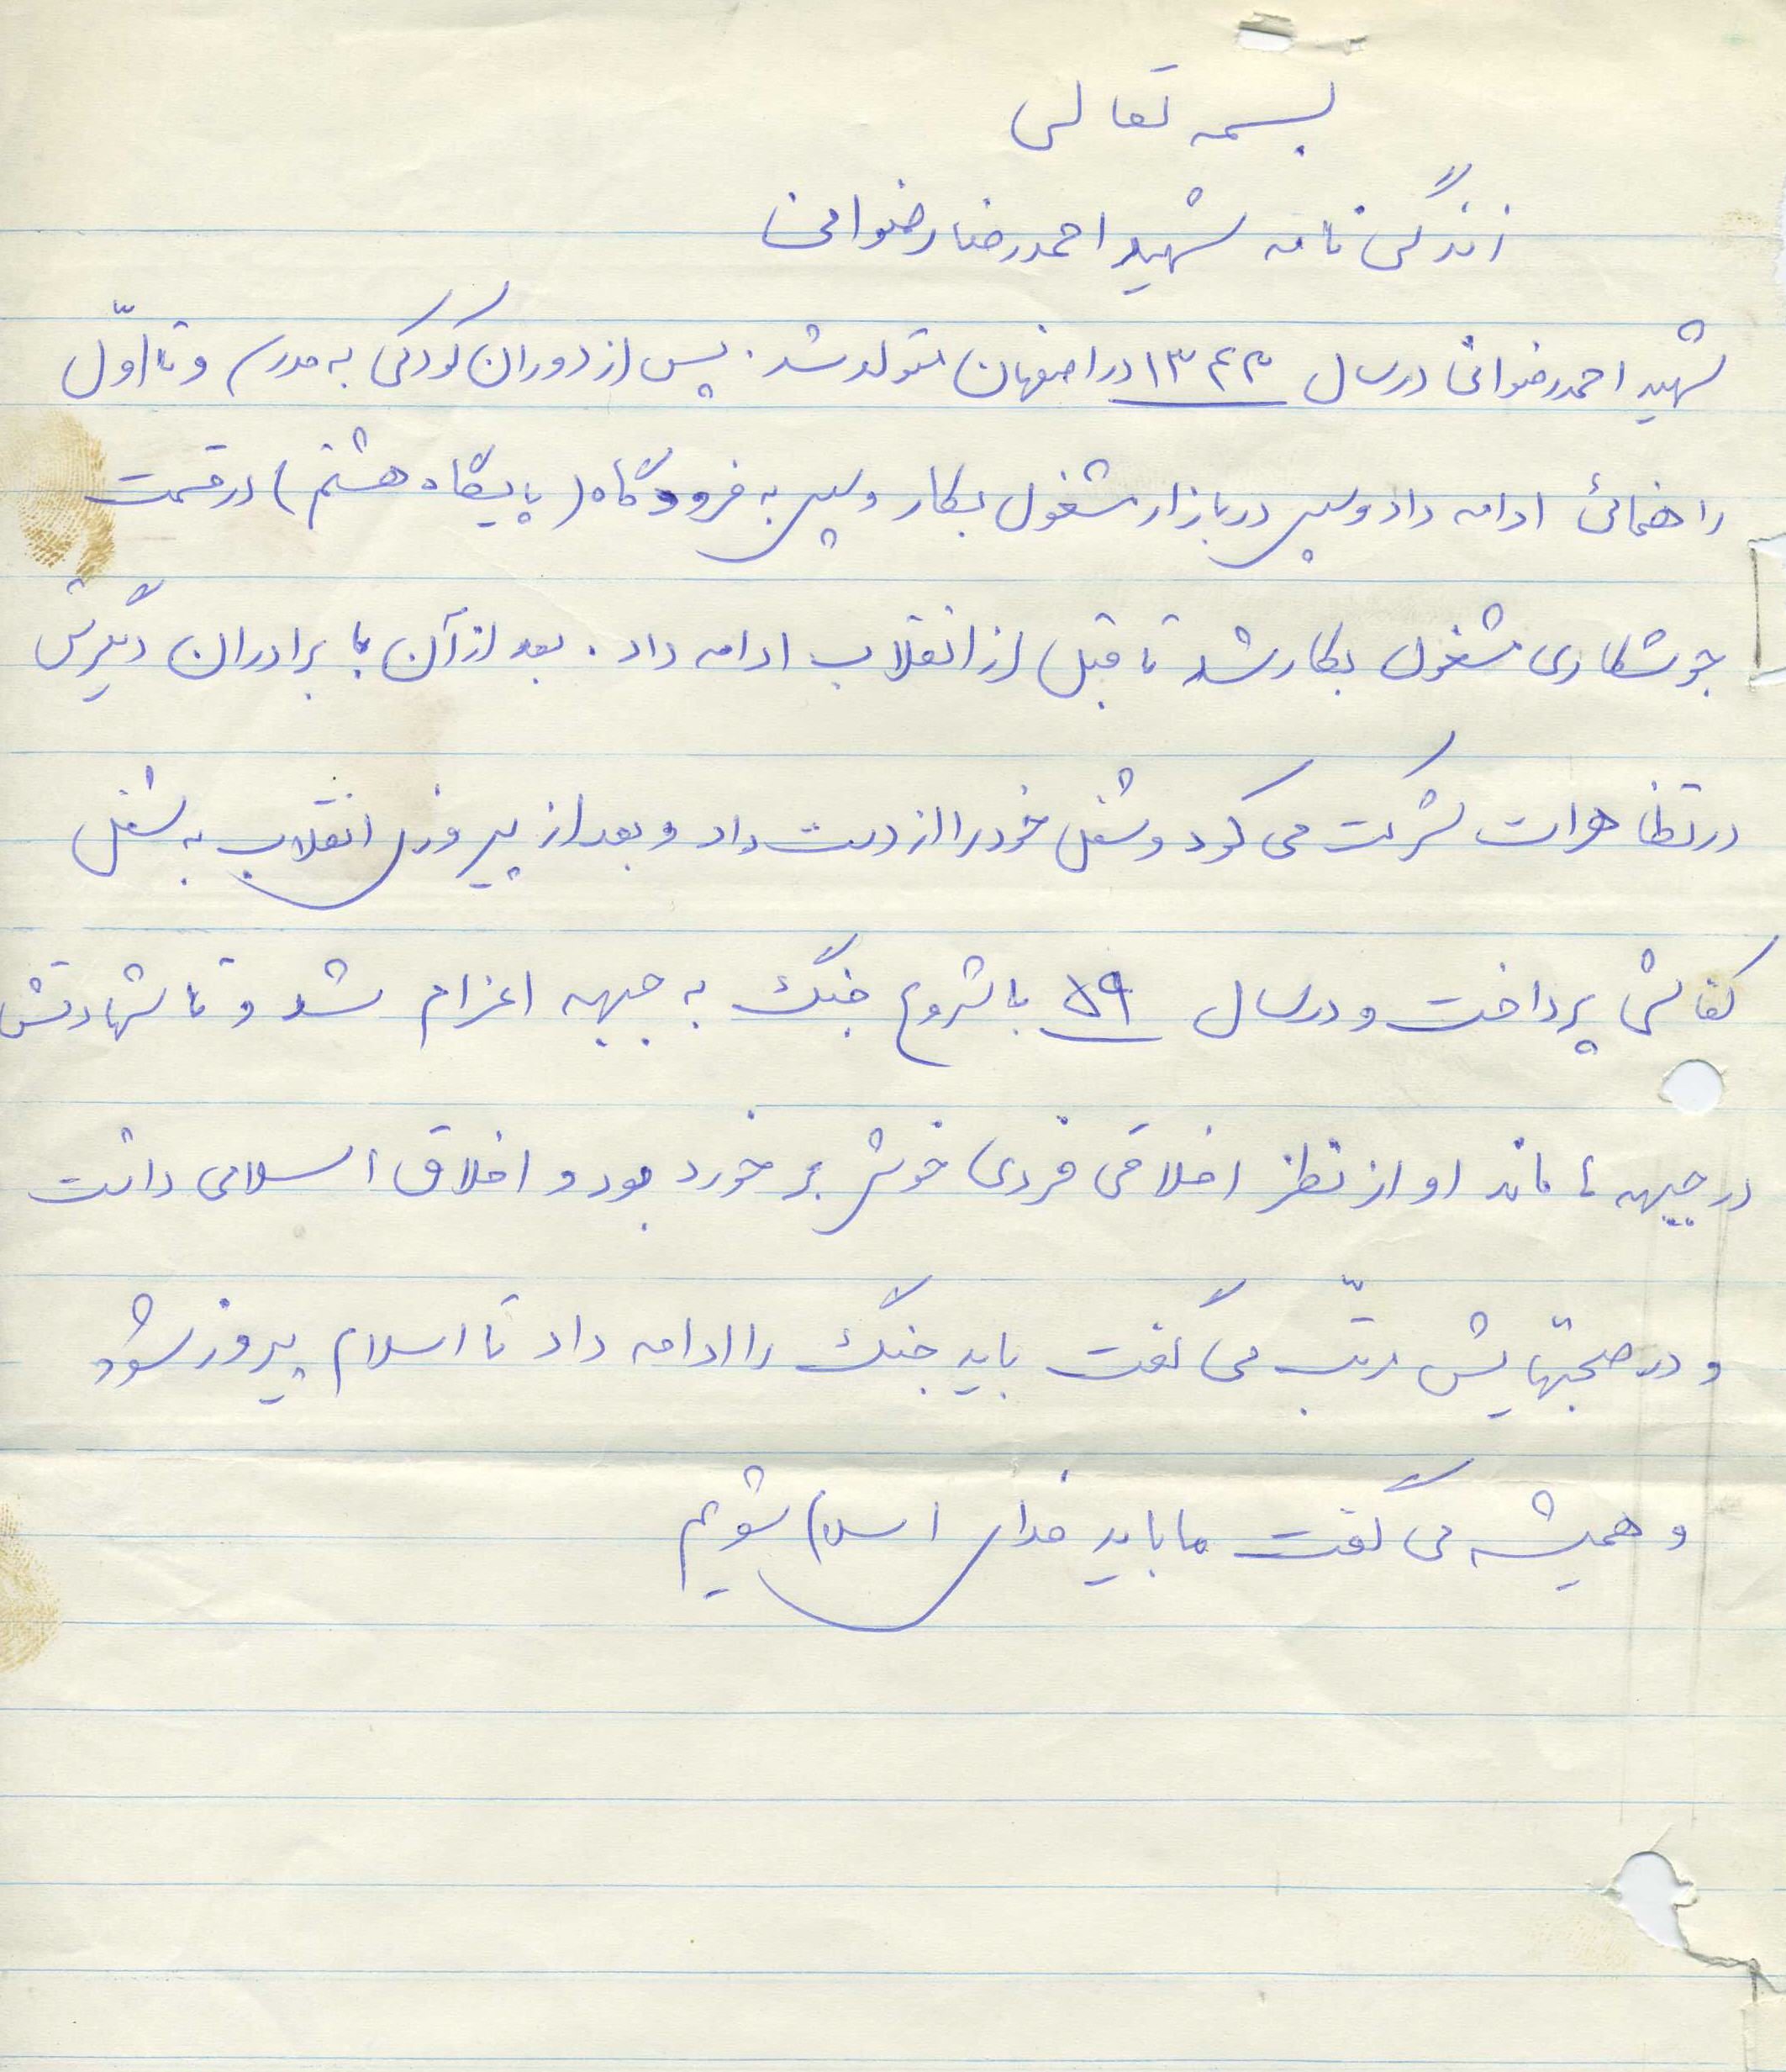 بسمه تعالی
زندگی نامه شهید احمدرضا رضوانی
شهید احمدرضوانی در سال ۱۳۴۳ در اصفهان متولد شد. پس از دوران کودکی به مدرسه و تا اوّل
راهنمائی ادامه داد و سپس در بازار مشغول بکار و سپس به فرودگاه (پایگاه هشتم) در قسمت
جوشکاری مشغول بکار شد تا قبل از انقلاب ادامه داد. بعد از آن با برادران دیگرش
در تظاهرات شرکت می کرد و شغل خود را از دست داد و بعد از پیروزی انقلاب به شغل
کفاشی پرداخت و در سال ۵۹ با شروع جنگ به جبهه اعزام شد و تا شهادتش
در جبهه ماند او از نظر اخلاقی فردی خوش برخورد بود و اخلاق اسلامی داشت
و در صحبتهایش مرتّب می گفت باید جنگ را ادامه داد تا اسلام پیروز شود
و همیشه می گفت ما باید فدای اسلام شویم